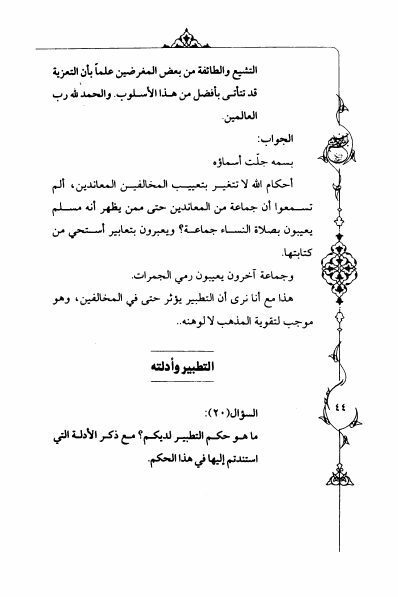 التشيع والطائفة من بعض المغرضين علماً بأن التعزية
قد تتأتى بأفضل من هذا الأسلوب. والحمد لله رب
العالمين.
الجواب:
بسمه جلّت أسماؤه
أحكام الله لا تتغير بتعييب المخالفين المعاندين، ألم
تسمعوا أن جماعة من المعاندين حتى ممن يظهر أنه مسلم
يعيبون بصلاة النساء جماعة؟ ويعبرون بتعابير أستحي من
كتابتها.
وجماعة آخرون يعيبون رمي الجمرات.
هذا مع أنا نرى أن التطبير يؤثر حتى في المخالفين، وهو
موجب لتقوية المذهب لا لوهنه..
التطبير وأدلته
٤٤
السؤال (٢٠):
ما هو حكم التطبير لديكم؟ مع ذكر الأدلة التي
استندتم إليها في هذا الحكم.